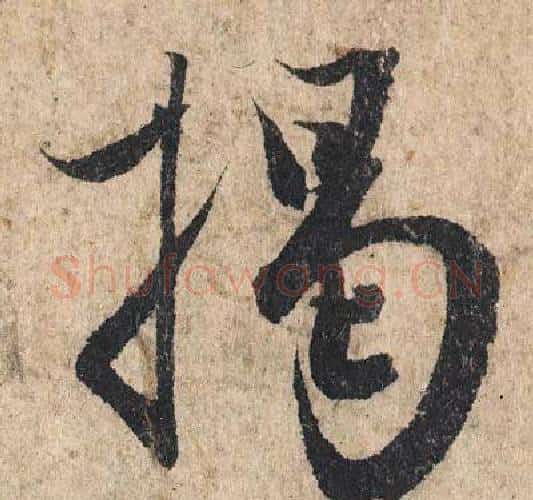 揭
Shufawang.CN